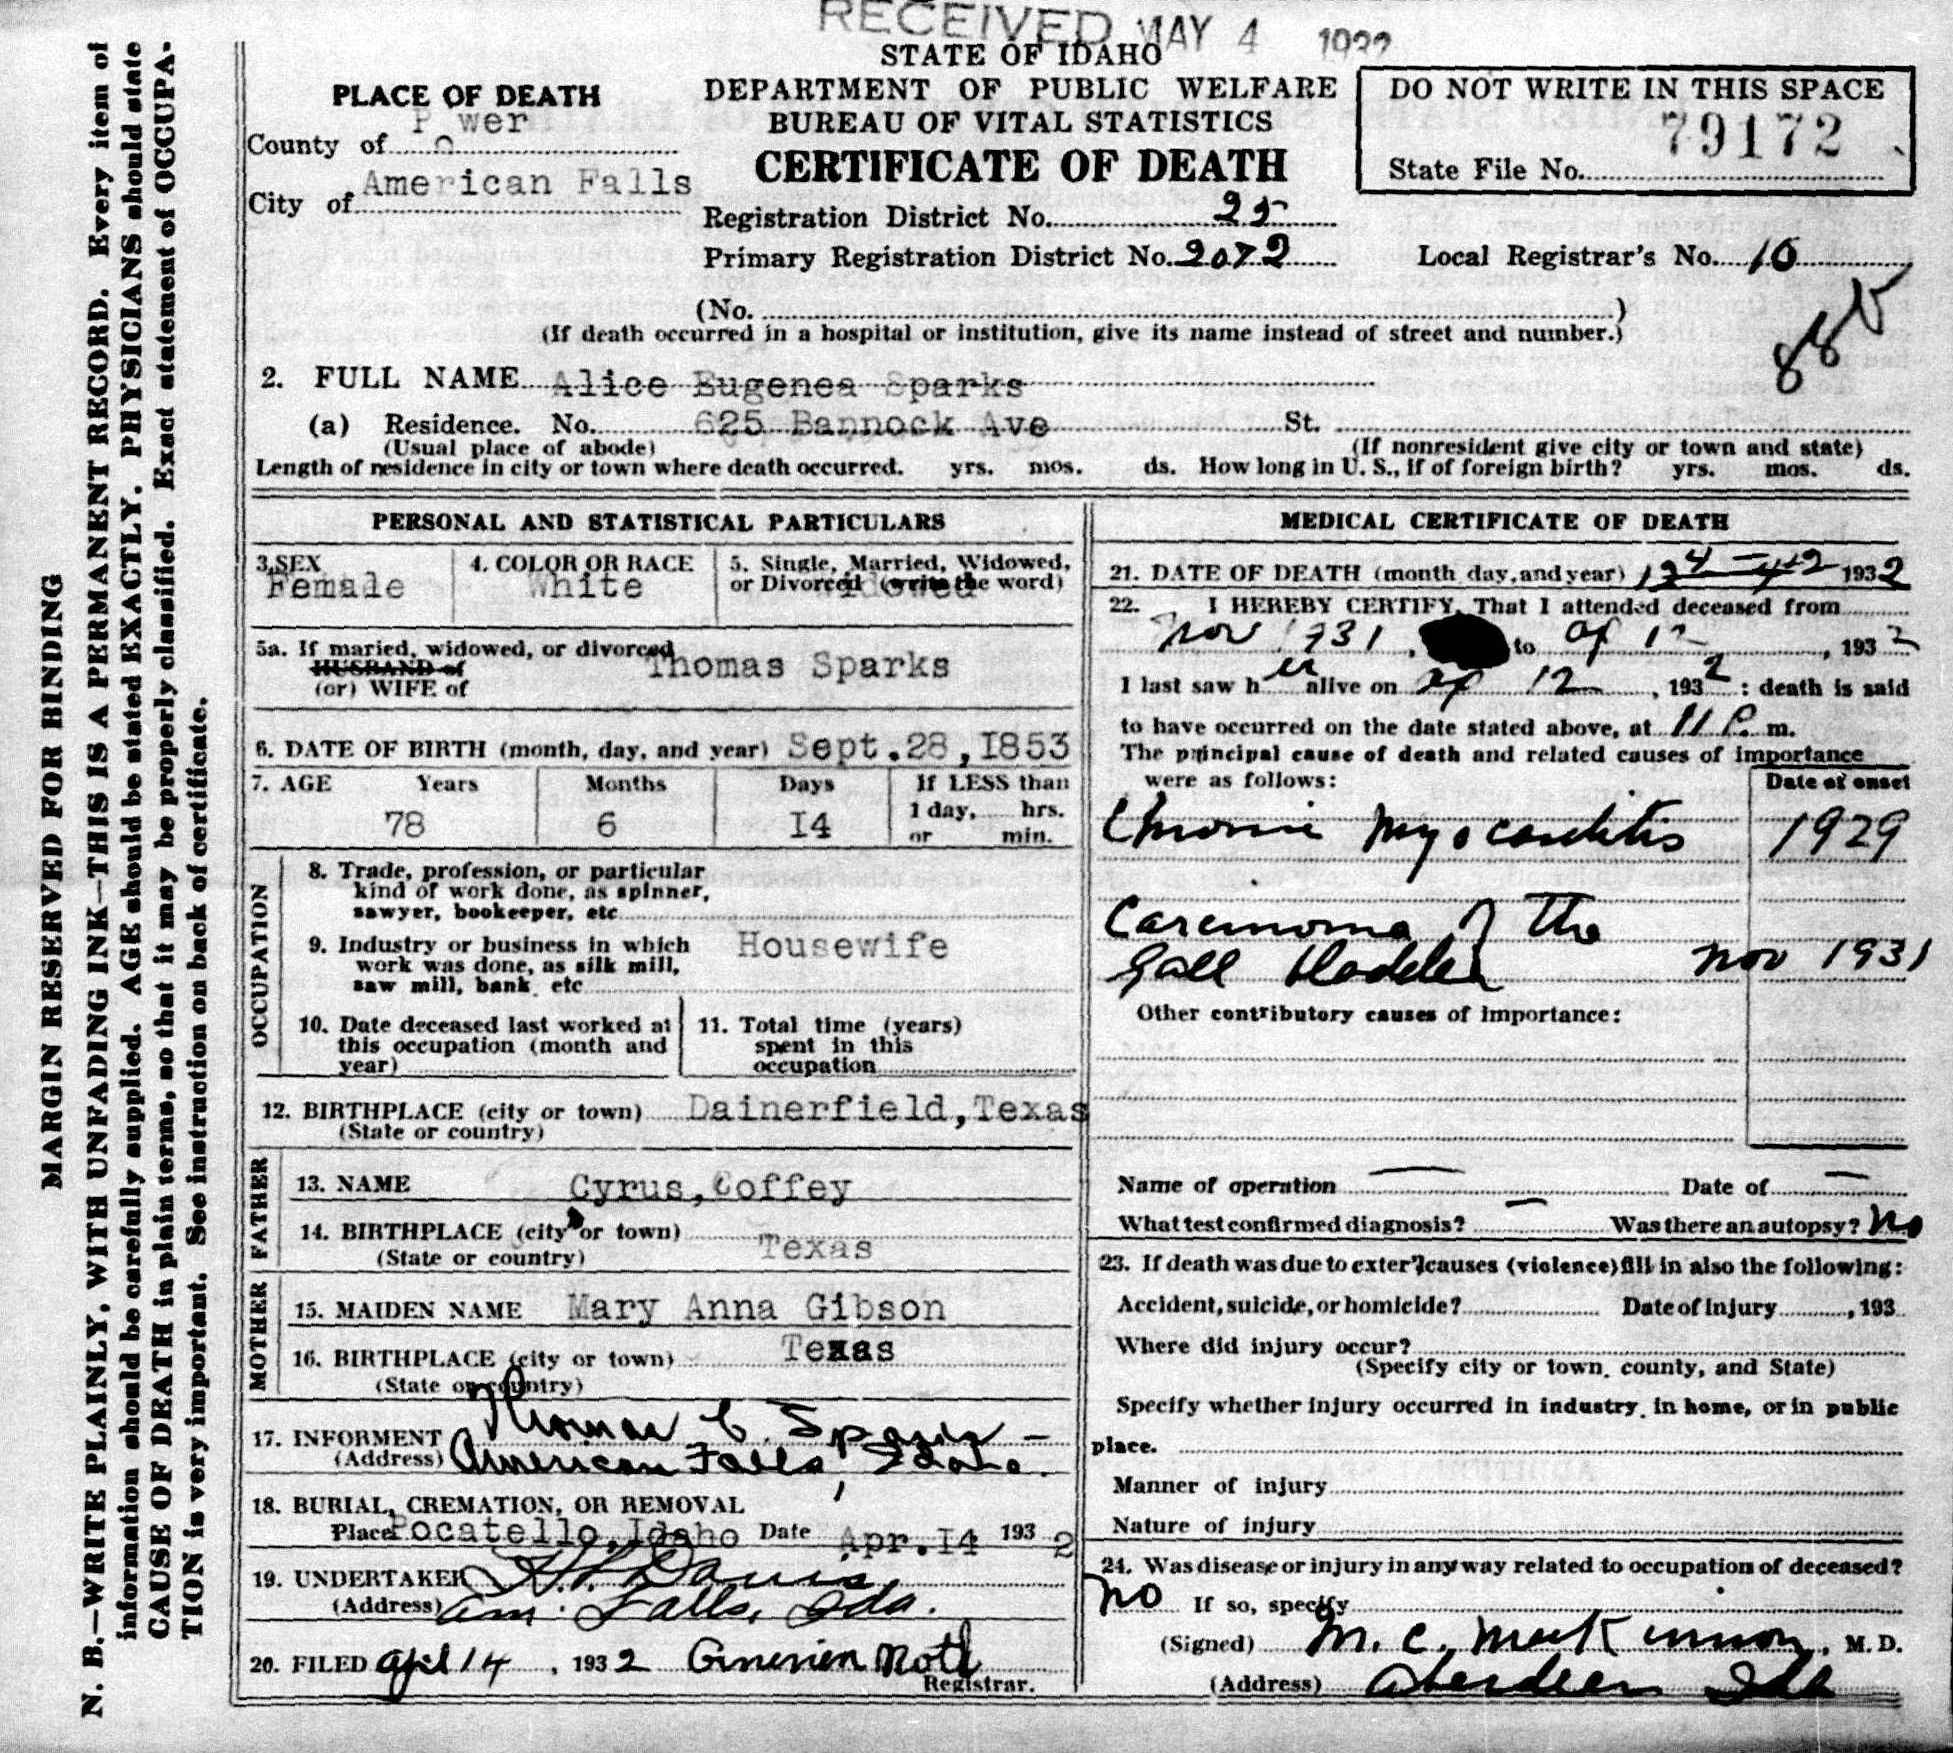 RECEIVED MAY 4 1932
STATE OF IDAHO
DEPARTMENT OF PUBLIC WELFARE
BUREAU OF VITAL STATISTICS
CERTIFICATE OF DEATH
PLACE OF DEATH
County of Power
City of American Falls
DO NOT WRITE IN THIS SPACE
79172
State File No.
Registration District No. 25
Primary Registration District No. 2072
Local Registrar's No. 10
(No. )
(If death occurred in a hospital or institution, give its name instead of street and number.)
885
2. FULL NAME Alice Eugenea Sparks
(a) Residence. No. 625 Bannock Ave St.
(Usual place of abode) (If nonresident give city or town and state)
Length of residence in city or town where death occurred. yrs. mos. ds. How long in U. S., if of foreign birth? yrs. mos. ds.
PERSONAL AND STATISTICAL PARTICULARS
3. SEX Female
4. COLOR OR RACE White
5. Single, Married, Widowed,
or Divorced (write the word) Widowed
5a. If married, widowed, or divorced
HUSBAND of
(or) WIFE of Thomas Sparks
6. DATE OF BIRTH (month, day, and year) Sept.28,1853
7. AGE Years Months Days If LESS than
78 6 14 1 day, hrs.
or min.
OCCUPATION
8. Trade, profession, or particular
kind of work done, as spinner,
sawyer, bookeeper, etc
9. Industry or business in which Housewife
work was done, as silk mill,
saw mill, bank, etc
10. Date deceased last worked at
this occupation (month and
year)
11. Total time (years)
spent in this
occupation
12. BIRTHPLACE (city or town) Dainerfield,Texas
(State or country)
FATHER
13. NAME Cyrus,Coffey
14. BIRTHPLACE (city or town)
(State or country) Texas
MOTHER
15. MAIDEN NAME Mary Anna Gibson
16. BIRTHPLACE (city or town) Texas
(State or country)
17. INFORMENT Thomas C. Sparks
(Address) American Falls, Idaho.
18. BURIAL, CREMATION, OR REMOVAL
Place Pocatello,Idaho Date Apr.14 1932
19. UNDERTAKER Davis
(Address) Am. Falls, Ida.
20. FILED April 14, 1932 Roth
Registrar.
MEDICAL CERTIFICATE OF DEATH
21. DATE OF DEATH (month day, and year) 1932
22. I HEREBY CERTIFY, That I attended deceased from
Nov 1931, to Ap 12, 1932
I last saw her alive on Ap 12, 1932 : death is said
to have occurred on the date stated above, at 11 P. m.
The principal cause of death and related causes of importance
were as follows: Date of onset
Chronic Myocarditis 1929
Carcinoma of the
Gall Bladder Nov 1931
Other contributory causes of importance:
Name of operation — Date of —
What test confirmed diagnosis? — Was there an autopsy? No
23. If death was due to exter'l causes (violence) fill in also the following:
Accident, suicide, or homicide? Date of injury , 193
Where did injury occur?
(Specify city or town, county, and State)
Specify whether injury occurred in industry, in home, or in public
place.
Manner of injury
Nature of injury
24. Was disease or injury in any way related to occupation of deceased?
No If so, specify
(Signed) M. C. MacKinnon, M. D.
(Address) Aberdeen Ida
MARGIN RESERVED FOR BINDING
N. B.—WRITE PLAINLY, WITH UNFADING INK—THIS IS A PERMANENT RECORD. Every item of
information should be carefully supplied. AGE should be stated EXACTLY. PHYSICIANS should state
CAUSE OF DEATH in plain terms, so that it may be properly classified. Exact statement of OCCUPA-
TION is very important. See instruction on back of certificate.